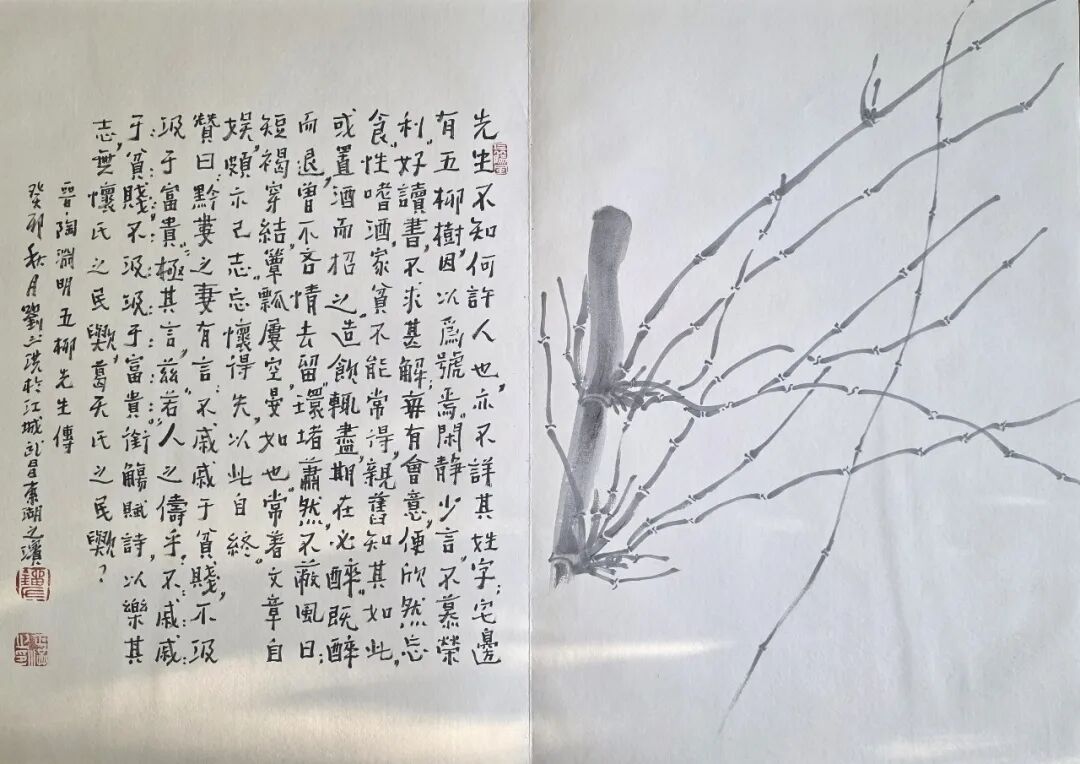 先生不知何許人也,亦不詳其姓字;宅邊
有五柳樹,因以爲號焉。閑靜少言,不慕榮
利。好讀書,不求甚解;每有會意,便欣然忘
食。性嗜酒,家貧不能常得,親舊知其如此,
或置酒而招之。造飲輒盡,期在必醉。既醉
而退,曾不吝情去留。環堵蕭然,不蔽風日;
短褐穿結,簞瓢屢空,晏如也。常著文章自
娛,頗示己志。忘懷得失,以此自終。
贊曰:黔婁之妻有言:不戚戚于貧賤,不汲
汲于富貴。極其言,茲若人之儔乎?不戚戚
于貧賤,不汲汲于富貴,銜觴賦詩,以樂其
志,無懷氏之民歟,葛天氏之民歟?
晉陶淵明五柳先生傳
癸卯秋月劉洪於江城武昌東湖之濱